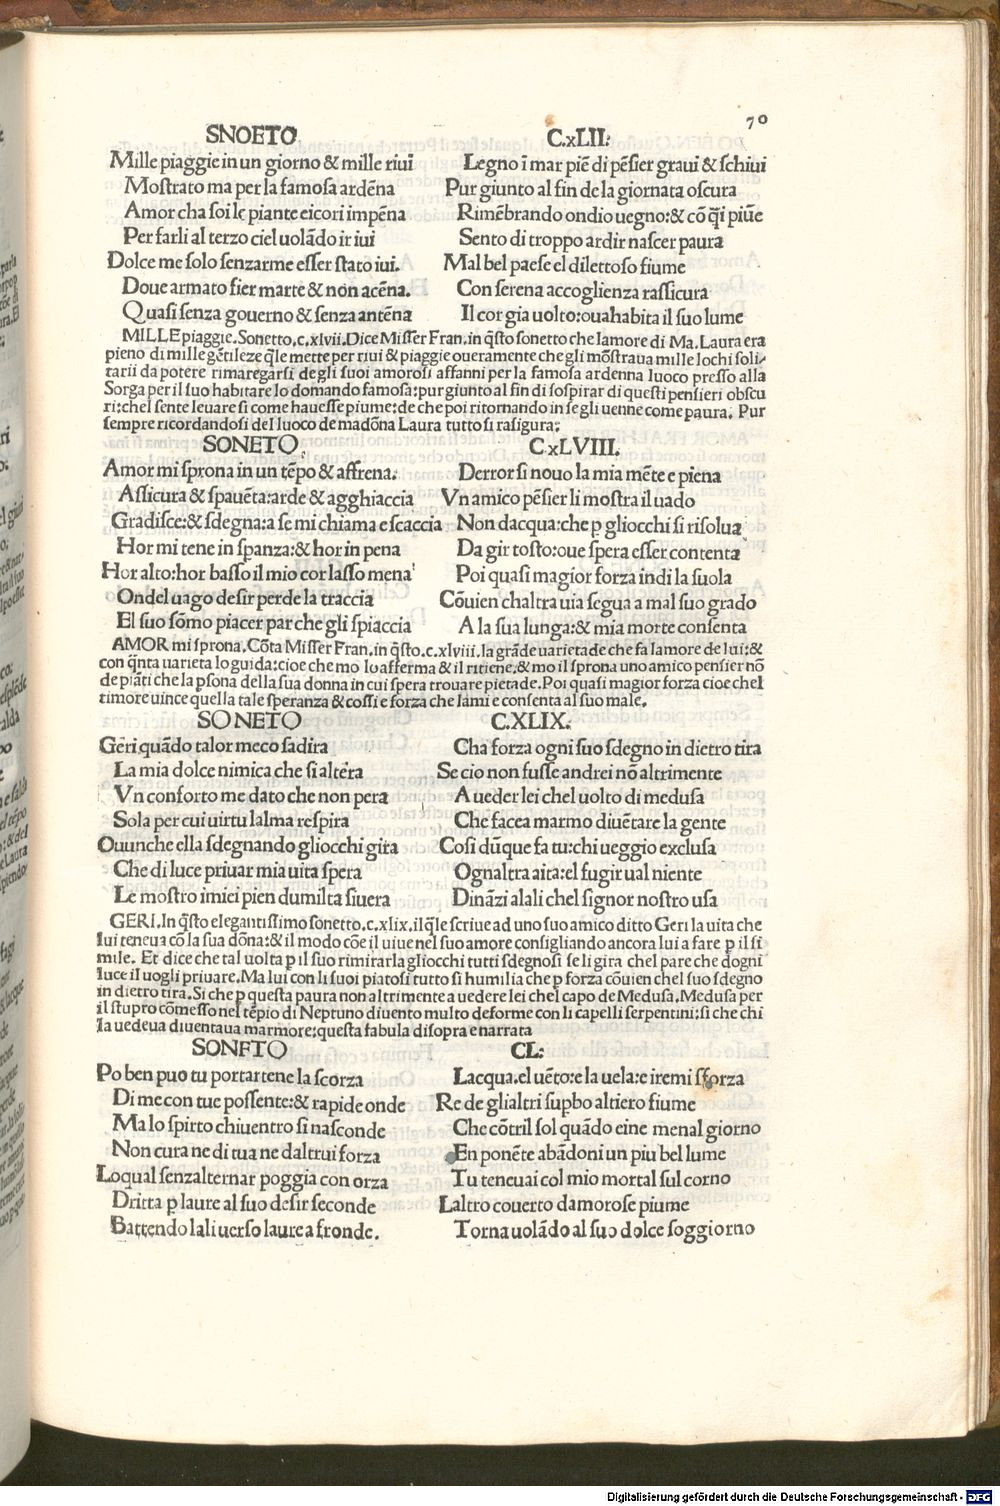 70
SNOETO C.xLII:
Mille piaggie in un giorno & mille riui
Mostrato ma per la famosa ardēna
Amor cha soi le piante eicori impēna
Per farli al terzo ciel uolādo ir iui
Dolce me solo senzarme esser stato iui.
Doue armato fier marte & non acēna.
Quasi senza gouerno & senza antēna
Legno ī mar piē di pēsier graui & schiui
Pur giunto al fin de la giornata oscura
Rimēbrando ondio uegno:& cō q̄i piūe
Sento di troppo ardir nascer paura
Mal bel paese el dilettoso fiume
Con serena accoglienza rassicura
Il cor gia uolto:ouahabita il suo lume
MILLE piaggie. Sonetto.c.xlvii. Dice Misser Fran.in q̄sto sonetto che lamore di Ma. Laura era
pieno di mille gētileze q̄le mette per riui & piaggie oueramente che gli mōstraua mille lochi soli⸗
tarii da potere rimaregarsi de gli suoi amorosi affanni per la famosa ardenna luoco presso alla
Sorga per il suo habitare lo domando famosa:pur giunto al fin di sospirar di questi pensieri obscu
ri:chel sente leuare si come hauesse piume:de che poi ritornando in se gli uenne come paura. Pur
sempre ricordandosi del luoco de madōna Laura tutto si rasigura:
SONETO. CxLVIII.
Amor mi sprona in un tēpo & affrena:
Assicura & spauēta:arde & agghiaccia
Gradisce:& sdegna:a se mi chiama e scaccia
Hor mi tene in spanza:& hor in pena
Hor alto:hor basso il mio cor lasso mena
Ondel uago desir perde la traccia
El suo sōmo piacer par che gli spiaccia
Derror si nouo la mia mēte e piena
Vn amico pēsier li mostra il uado
Non dacqua:che p gliocchi si risolua
Da gir tosto:oue spera esser contenta
Poi quasi magior forza indi la suola
Cōuien chaltra uia segua a mal suo grado
A la sua lunga:& mia morte consenta
AMOR mi sprona. Cōta Misser Fran.in q̄sto.c.xlviii.la grāde uarietade che fa lamore de lui:&
con q̄nta uarieta lo guida:cioe che mo lo afferma & il ritiene.& mo il sprona uno amico pensier nō
de piāti che la psona della sua donna in cui spera trouare pietade. Poi quasi magior forza cioe chel
timore uince quella tale speranza & cossi e forza che lami e consenta al suo male.
SONETO C.XLIX.
Geri quādo talor meco sadira
La mia dolce nimica che si altera
Vn conforto me dato che non pera
Sola per cui uirtu lalma respira
Ouunche ella sdegnando gliocchi gira
Che di luce priuar mia uita spera
Le mostro imiei pien dumilta siuera
Cha forza ogni suo sdegno in dietro tira
Se cio non fusse andrei nō altrimente
A ueder lei chel uolto di medusa
Che facea marmo diuētare la gente
Cosi dūque fa tu:chi ueggio exclusa
Ognaltra aita:el fugir ual niente
Dināzi alali chel signor nostro usa
GERI. In q̄sto elegantissimo sonetto.c.xlix.il q̄le scriue ad uno suo amico ditto Geri la uita che
lui teneua cō la sua dōna:& il modo cōe il uiue nel suo amore consigliando ancora lui a fare p il si
mile. Et dice che tal uolta p il suo rimirarla gliocchi tutti sdegnosi se li gira chel pare che dogni
luce il uogli priuare. Ma lui con li suoi piatosi tutto si humilia che p forza cōuien chel suo sdegno
in dietro tira. Si che p questa paura non altrimente a uedere lei chel capo de Medusa. Medusa per
il stupro cōmesso nel tēpio di Neptuno diuento multo deforme con li capelli serpentini:si che chi
la uedeua diuentaua marmore:questa fabula disopra e narrata
SONETO CL:
Po ben puo tu portartene la scorza
Di me con tue possente:& rapide onde
Ma lo spirto chiuentro si nasconde
Non cura ne di tua ne daltrui forza
Loqual senzalternar poggia con orza
Dritta p laure al suo desir seconde
Battendo lali uerso laurea fronde.
Lacqua.el uēto:e la uela:e iremi sforza
Re de glialtri supbo altiero fiume
Che cōtril sol quādo eine menal giorno
En ponēte abādoni un piu bel lume
Tu teneuai col mio mortal sul corno
Laltro couerto damorose piume
Torna uolādo al suo dolce soggiorno
Digitalisierung gefördert durch die Deutsche Forschungsgemeinschaft - DFG